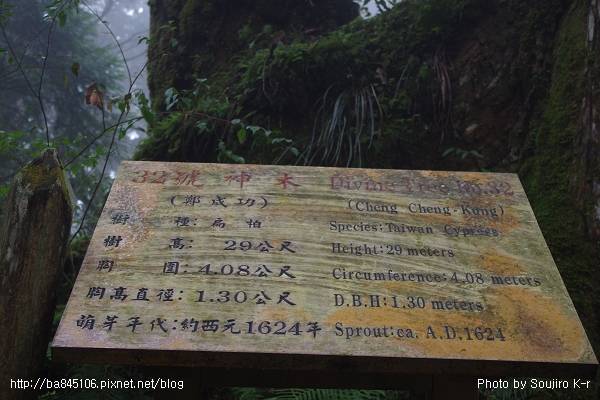 32號神木 Divine Tree No.32
(鄭成功) (Cheng Cheng-Kung)
樹種:扁柏 Species:Taiwan Cypress
樹高: 29公尺 Height:29 meters
胸圍:4.08公尺 Circumference:4.08 meters
胸高直徑:1.30公尺 D.B.H:1.30 meters
萌芽年代:約西元1624年 Sprout:ca. A.D.1624
http://ba845106.pixnet.net/blog
Photo by Soujiro K-r